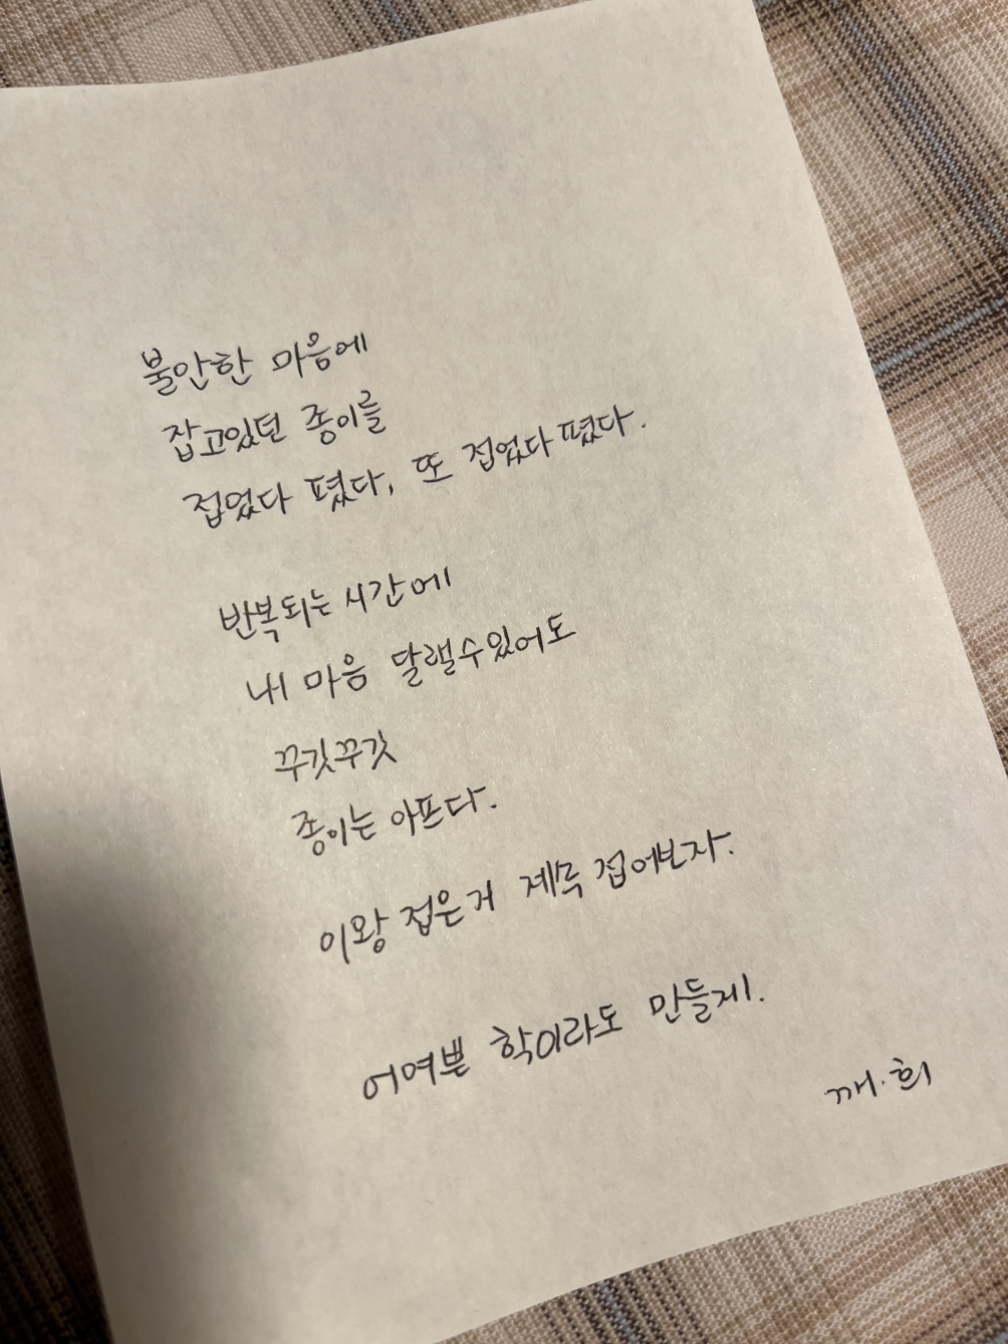 불안한 마음에
잡고있던 종이를
접었다 폈다, 또 접었다 폈다.
반복되는 시간에
내 마음 달랠수있어도
꾸깃꾸깃
종이는 아프다.
이왕 접은거 계속 접어보자.
어여쁜 학이라도 만들게.
깨.희